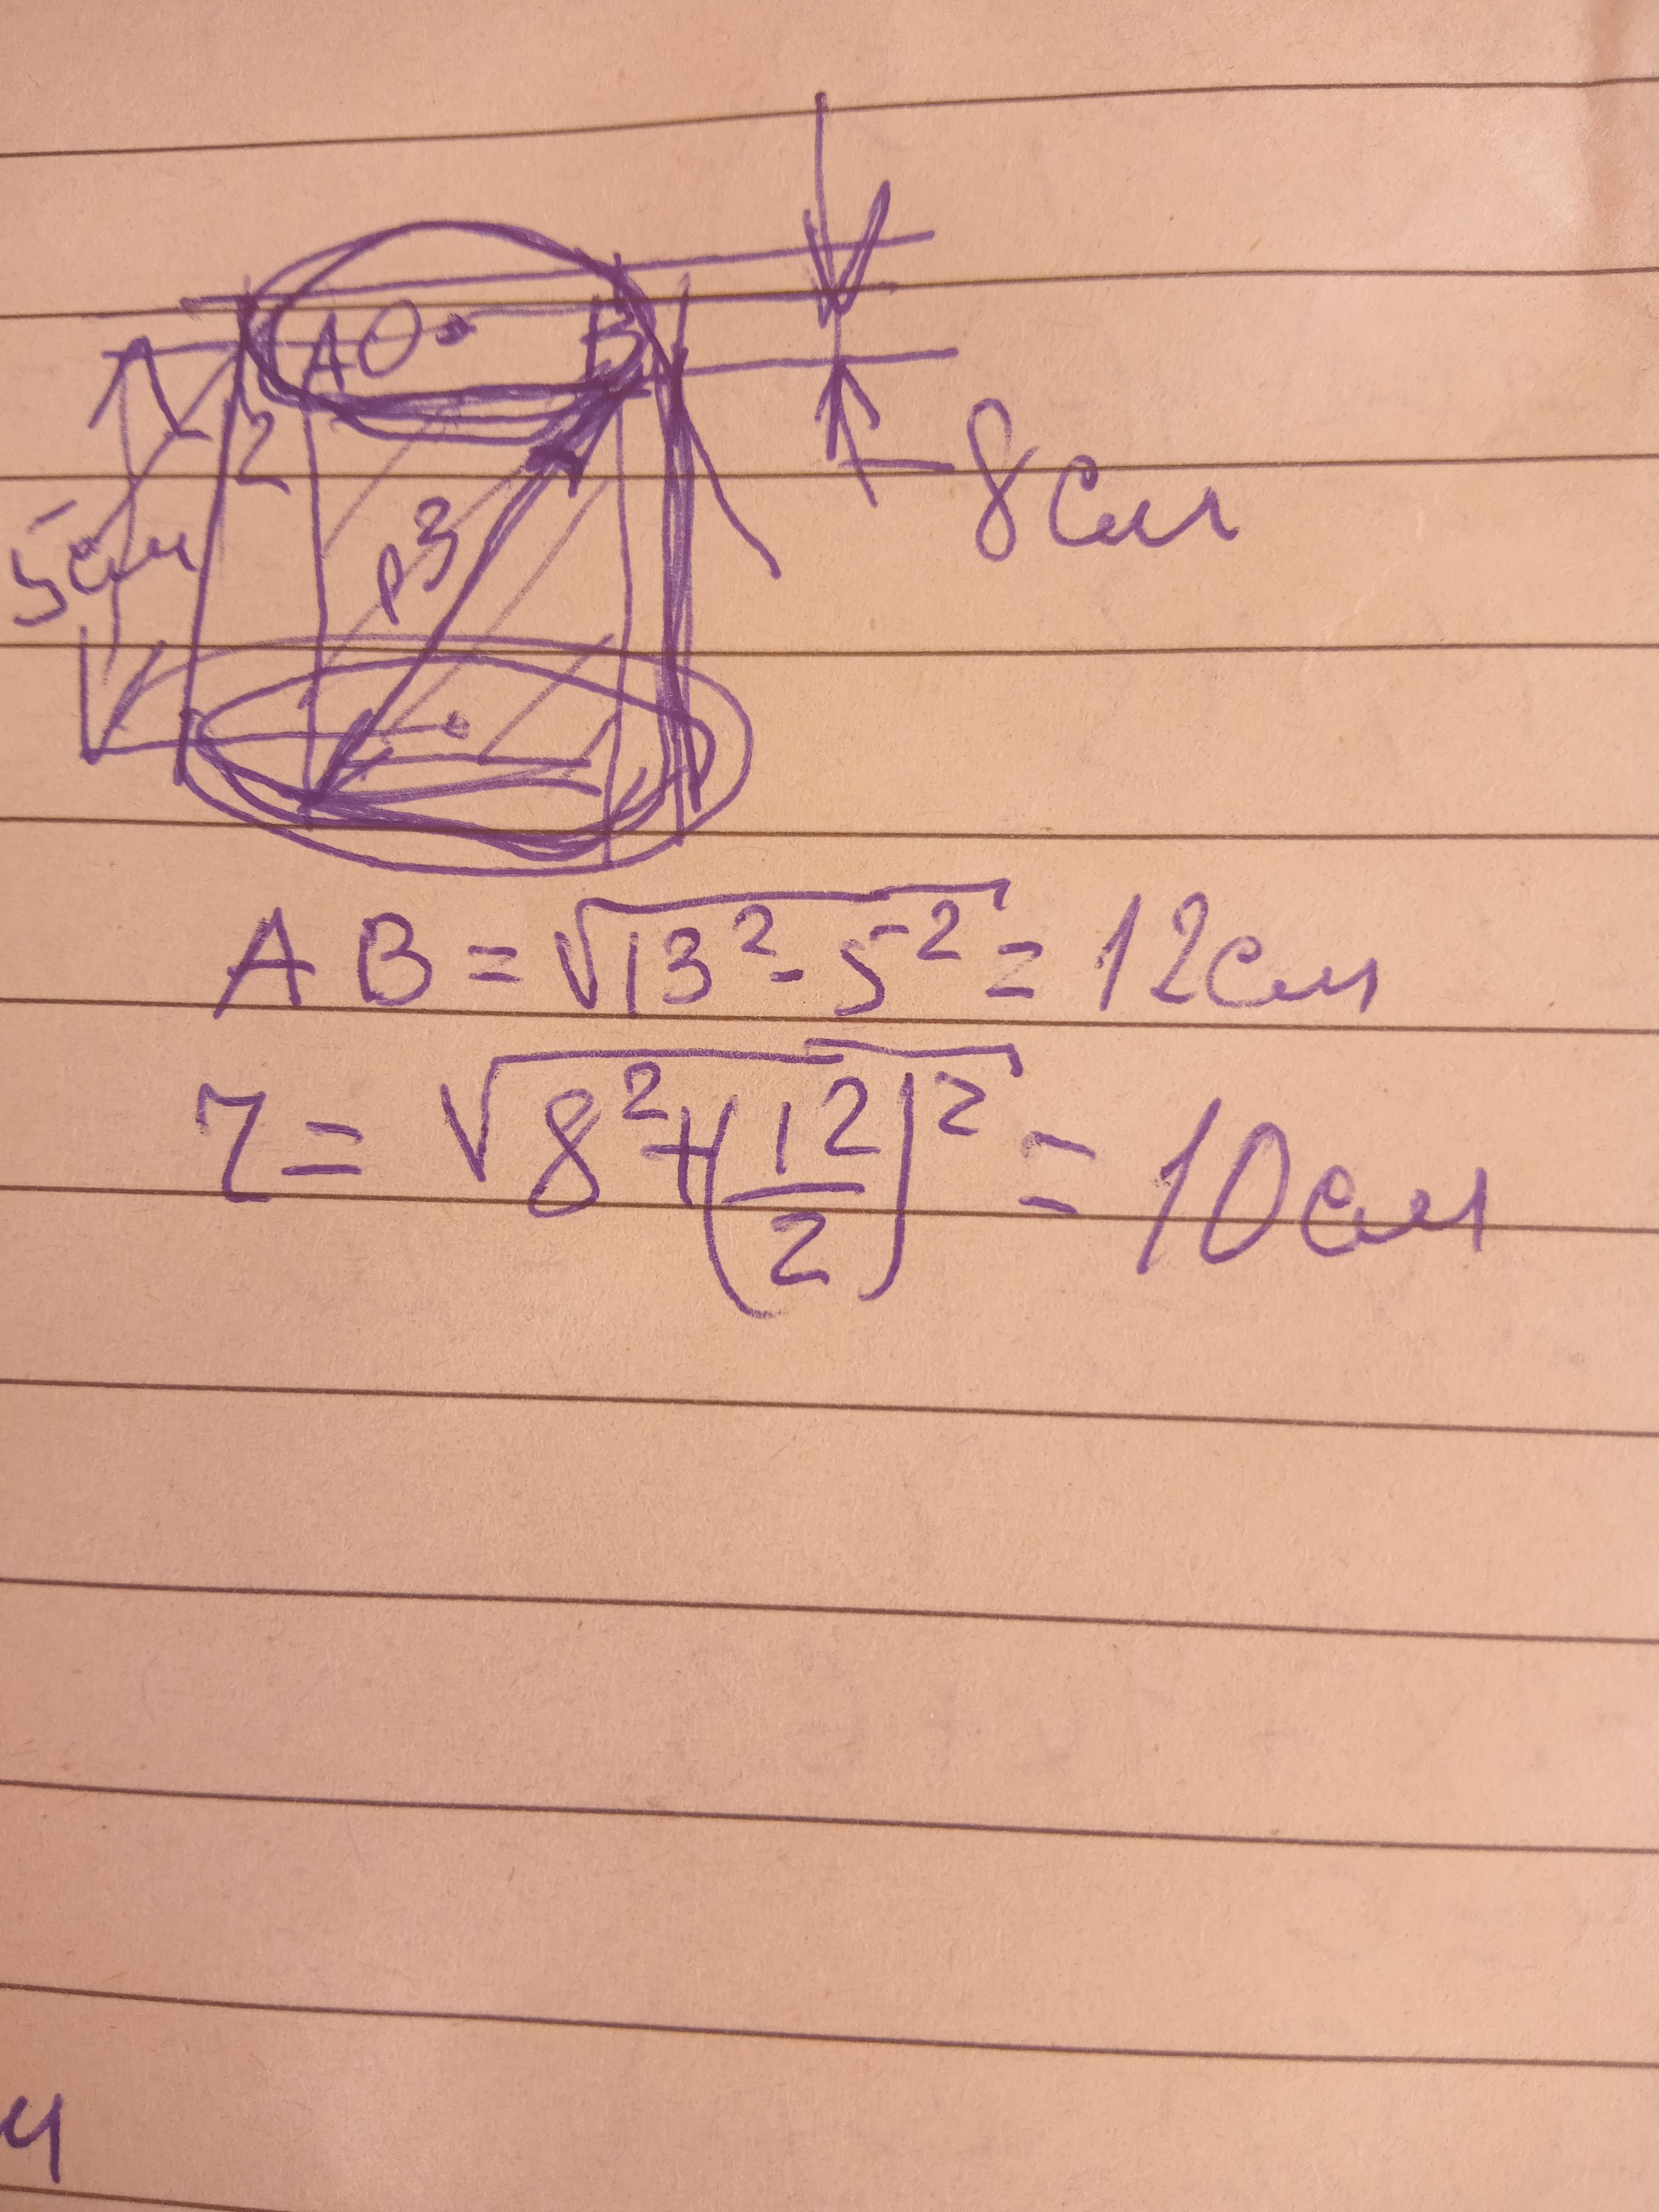 A O B
2
13
5см
8см
AB = √13² - 5² = 12см
r = √8² + (12/2)² = 10см
м